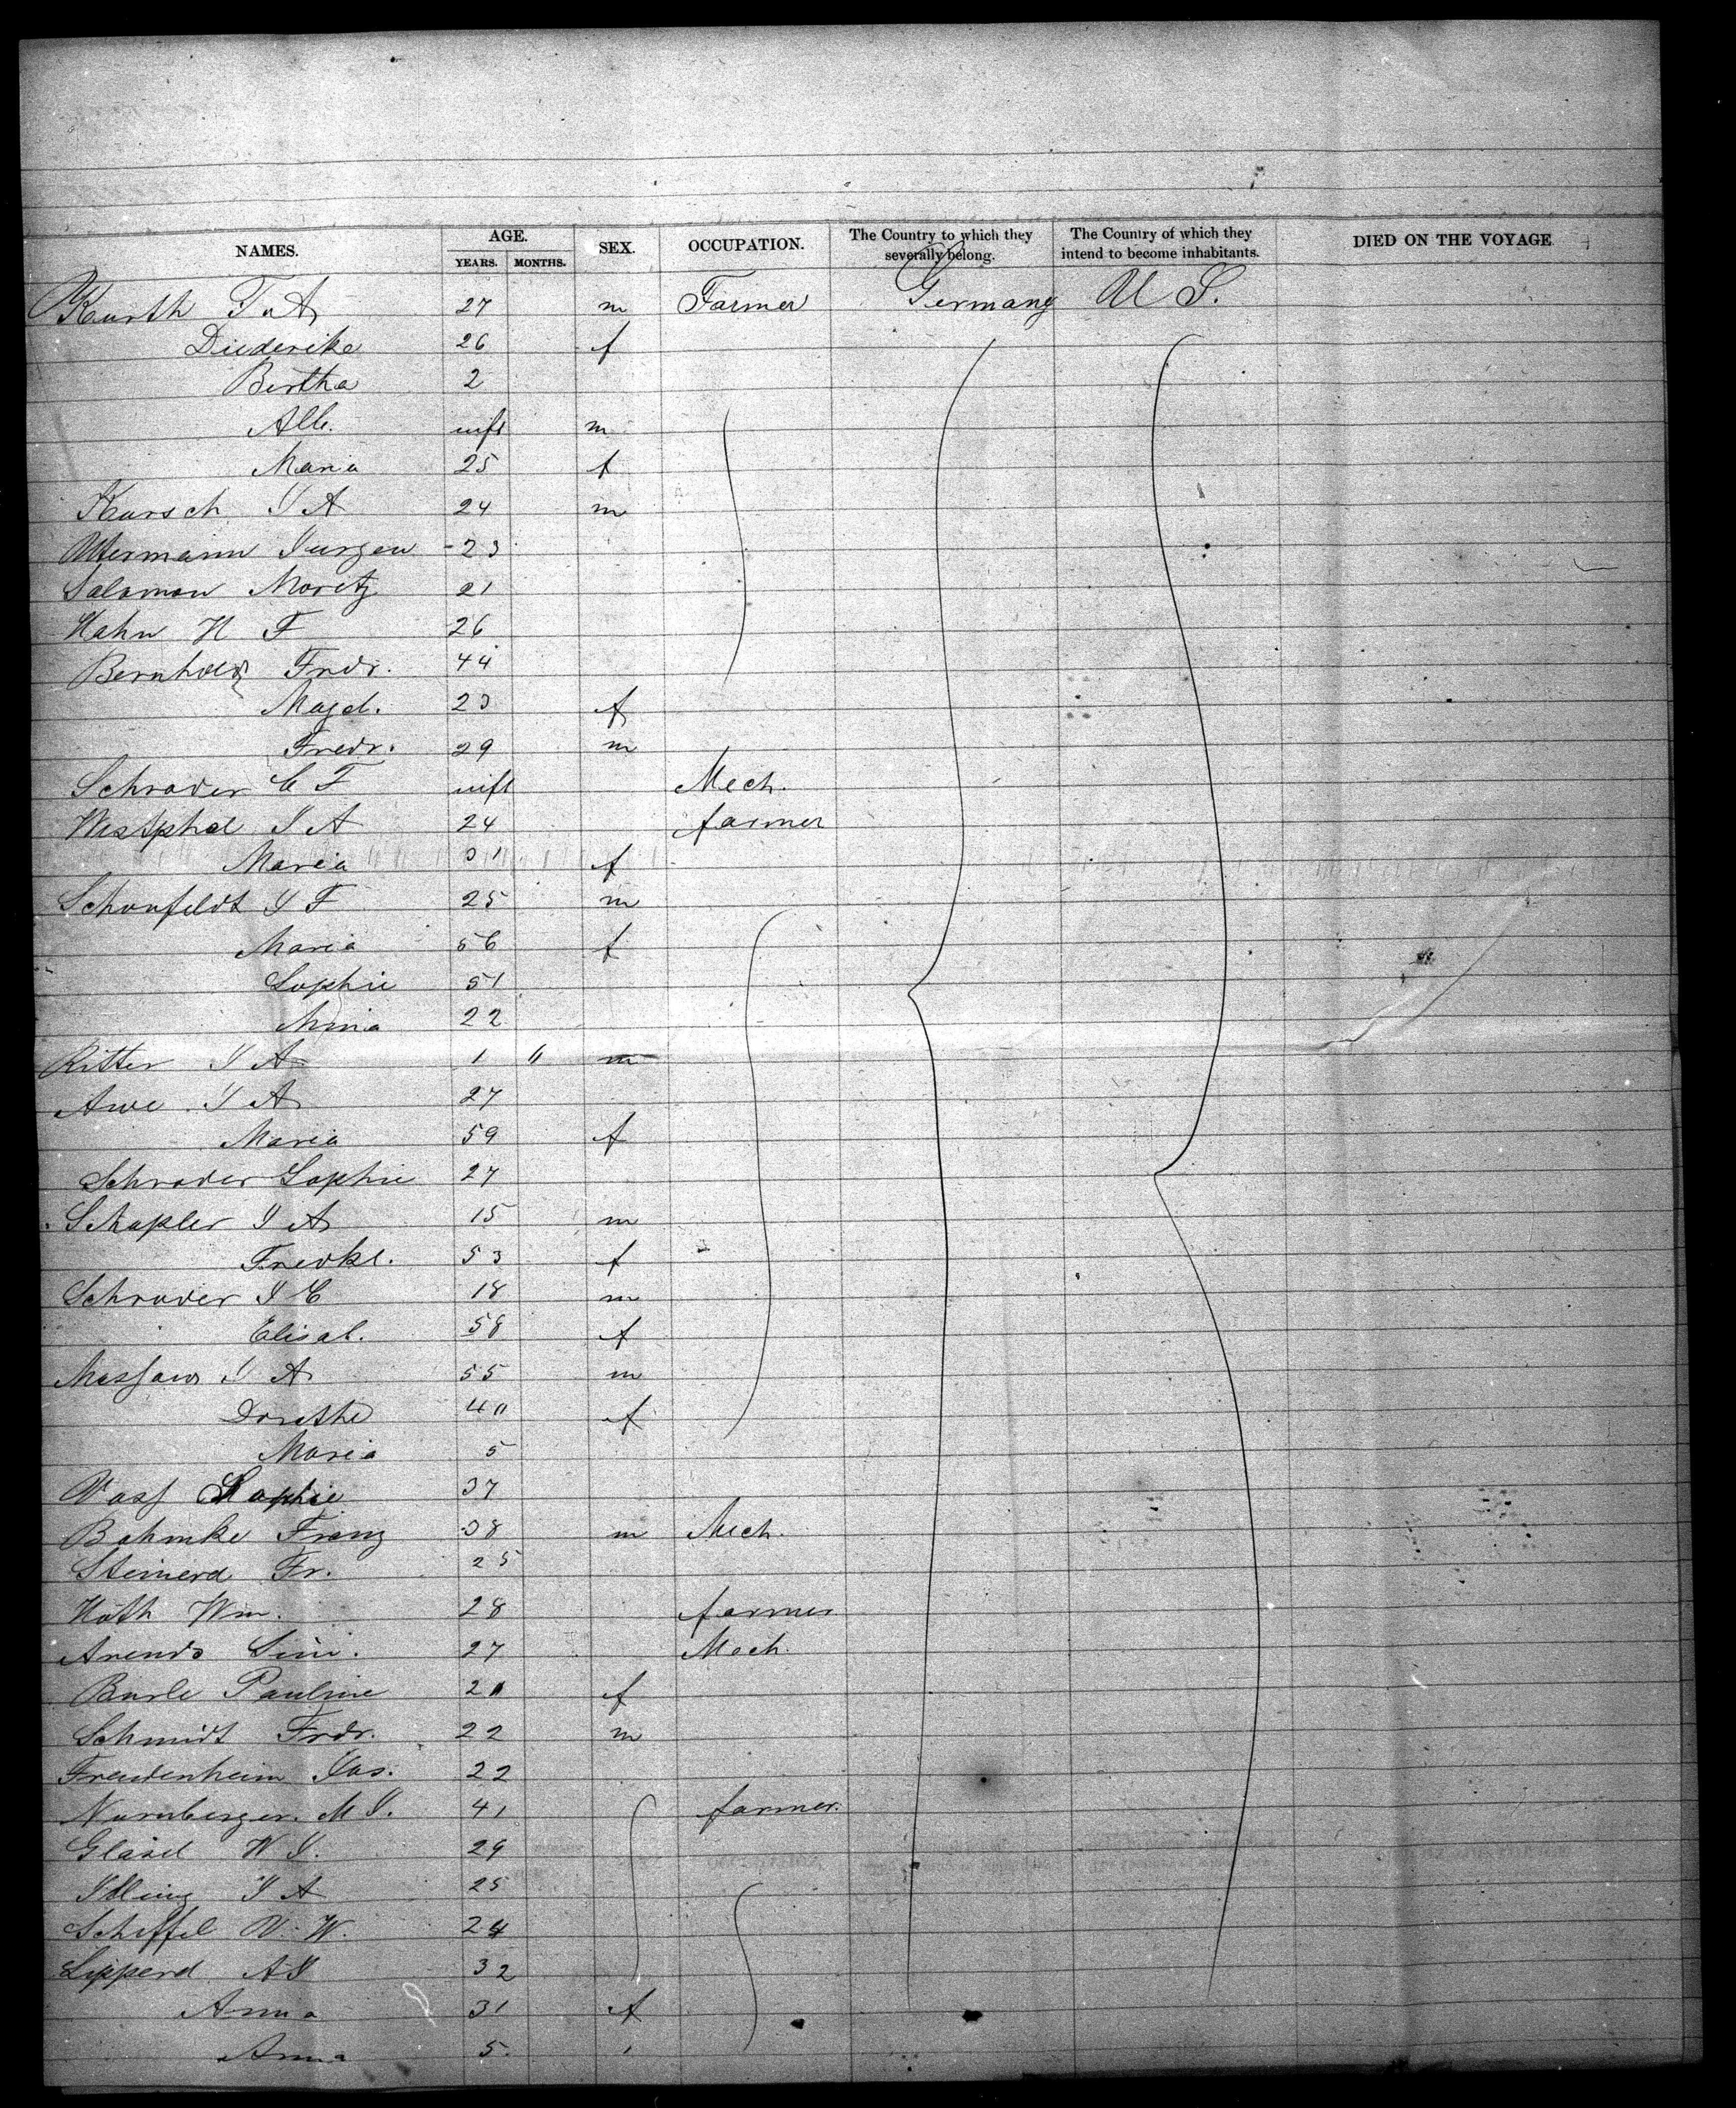 NAMES. AGE. SEX. OCCUPATION. The Country to which they severally belong. The Country of which they intend to become inhabitants. DIED ON THE VOYAGE
YEARS. MONTHS.
Kurth 27 m Farmer Germany U S.
Diederike 26 f
Bertha 2
Alb. inft m
Maria 25 f
Karsch J A 24 m
Jurgen 23
Salomon Moritz 21
Hahn H F 26
Fredr. 44
Magd. 23 f
Fredr. 29 m
Schrader C F inft Mech.
Westphal J A 24 farmer
Maria 31 f
Schonfeldt J F 25 m
Maria 56 f
Sophie 51
22
Ritter J A 1 11 m
Awe J A 27
Maria 59 f
Schrader Sophie 27
Schapler J A 15 m
Fredke. 53 f
Schrader J C 18 m
Elisab. 58 f
Massow J A 55 m
Dorothe 40 f
Maria 5
Vass Sophie 37
Bahmke Franz 38 m Mech.
Steinerd Fr. 25
Wm. 28 farmer
Arends 27 Mech.
Pauline f
Schmidt Frdr. 22 m
Freudenheim Jos. 22
Nurnberger. M J. 41 farmer.
Glasel W J. 29
Illing J A 25
Scheffel W. 24
Lipperd A J 32
Anna 31 f
Anna 5.